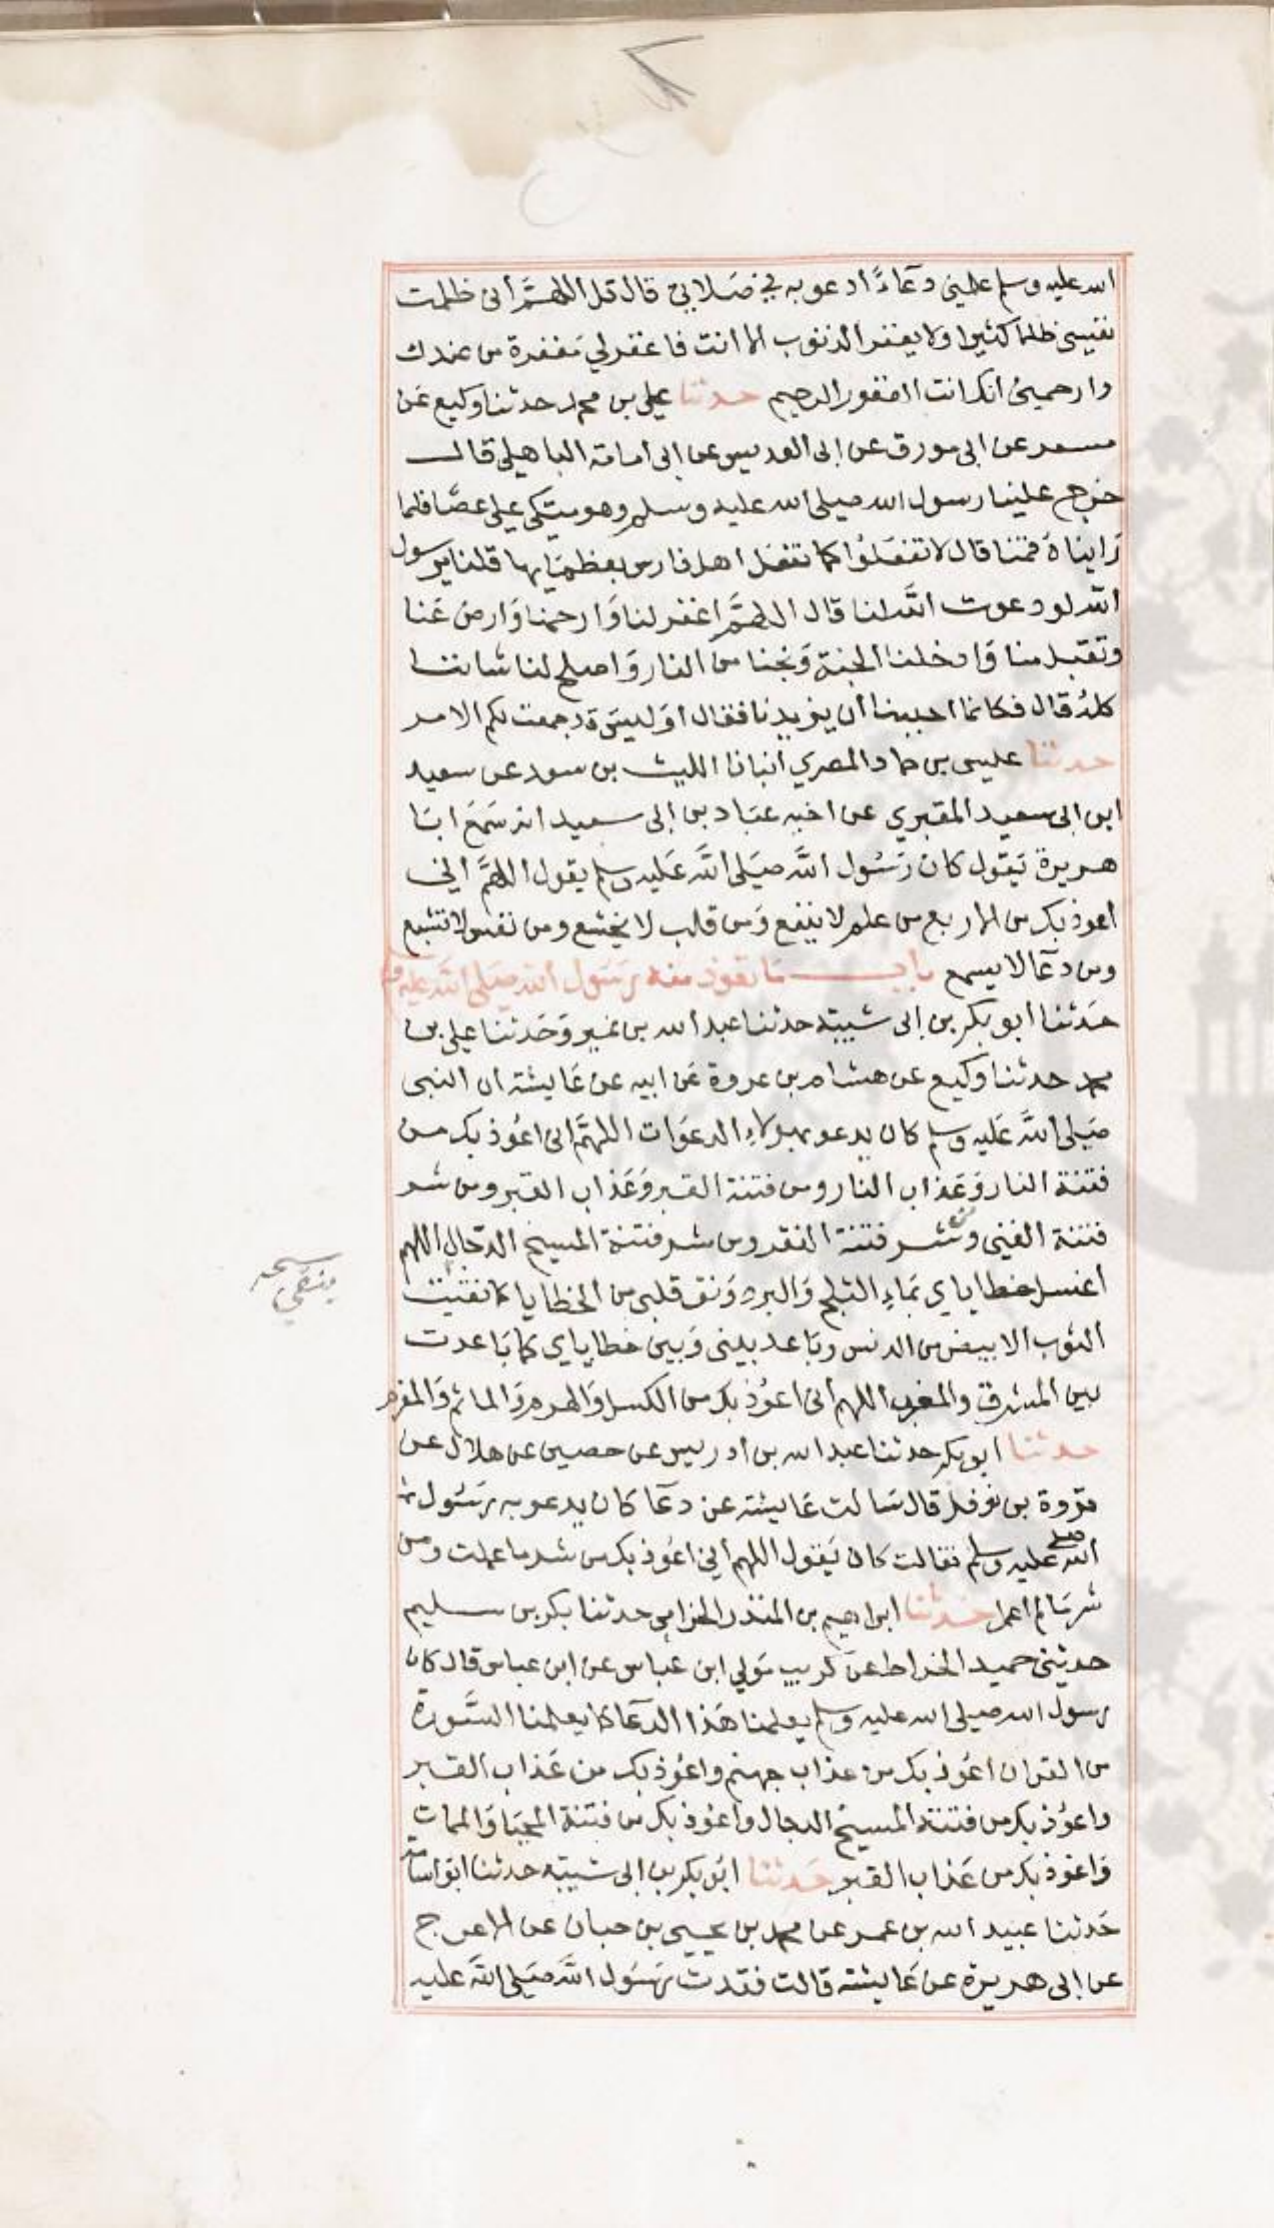 الله عليه وسلم علمني دعاءً ادعو به في صلاتي قال قل اللهمَّ أني ظلمت
نفسي ظلما كثيرا ولا يغفر الذنوب الا انت فاغفر لي مغفرة من عندك
وارحمني انك انت الغفور الرحيم حدثنا علي بن محمد حدثنا وكيع عن
مسعر عن ابي مرزوق عن ابي العدبس عن ابي امامة الباهلي قال
خرج علينا رسول الله صلى الله عليه وسلم وهو متكي على عصًا فلما
رَايناهُ قمنا قال لا تفعلُوا كما تفعل اهل فارس بعظمائها قلنا يرسول
الله لو دعوت الله لنا قال اللهمَّ اغفر لنا وَارحمنا وَارض عَنا
وتقبل منا وَادخلنا الجنة وَنجنا من النار وَاصلح لنا شاننا
كلهُ قال فكانما احببنا أن يزيدنا فقال اوَليسَ قد جمعت لكم الامر
حدثنا عليسى بن حماد المصري أنبانا الليث بن سعد عن سعيد
ابن ابى سعيد المقبري عن اخيه عبَاد بن ابى سعيد انه سَمعَ ابَا
هريرة يَقول كان رَسُول اللَّه صَلى اللَّه عَليه وسلم يقول اللهمَّ اني
اعوذ بك من الاربع من علم لا ينفع وَمن قلب لا يخشع ومن نفس لا تشبع
ومن دعآ لا يسمع بابـــ مَا تعوذ منه رَسُول الله صَلى اللَّه عليه وسلم
حَدثنا أبو بكر بن ابى شيبة حدثنا عبد الله بن نمير وَحَدثنا علي بن
محمد حدثنا وكيع عن هشام بن عروة عَن ابيه عن عَايشة ان النبى
صَلى اللَّه عَليه وسلم كان يدعو بهولاءِ الدعوَات اللهمَّ انى اعُوذ بك من
فتنة النار وَعَذاب النار ومن فتنة القبر وَعَذاب القبر ومن شر
فتنة الغنى ومن شر فتنة الفقر ومن شر فتنة المسيح الدجال اللهم
أغسل خطاياي بمَاءِ الثلج وَالبرد وَنق قلبى من الخطايا كما نقيت
الثوب الابيض من الدنس وبَاعد بيني وَبين خطاياي كما بَاعدت
بين المشرق والمغرب اللهم انى اعوُذ بك من الكسل وَالهرم وَالماثم وَالمغرم
حدثنا ابو بكر حدثنا عبد الله بن ادريس عن حصين عن هلال عن
فروة بن نوفل قال سَالت عَايشة عن دعآ كان يدعو به رَسُول
الله صلى عليه وسلم فقالت كان يَقول اللهم أني اعُوذ بك من شر ما عملت ومن
شر مَا لم اعمل حَدثنا ابراهيم بن المنذر الحزامي حدثنا بكر بن سليم
حدثني حميد الخراط عن كريب مَولي ابن عباس عن ابن عباس قال كان
رسول الله صلى الله عليه وسلم يعلمنا هَذا الدعآ كما يعلمنا السُّورة
من القران اعُوذ بك من عذاب جهنم واعُوذ بك من عَذاب القبر
واعوُذ بك من فتنة المسيح الدجال واعُوذ بك من فتنة المحيَا وَالممات
وَاعُوذ بك من عَذاب القبر حَدثنا ابُو بكر بن ابى شيبة حدثنا ابو اسامة
حَدثنا عبيد الله بن عمر عن محمد بن يحيى بن حبان عن الاعرج
عن ابى هريرة عن عَايشة قالت فقدت رَسُول اللَّه صَلى اللَّه عليه